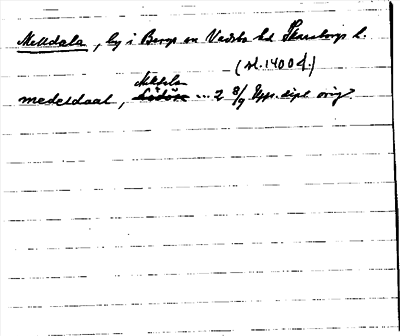 Melldala, by i Bergs sn Vadsbo hd Skaraborgs l.
(sl. 1400 t.)
medeldaal, ... 2 8/9 Upps. dipl orig.